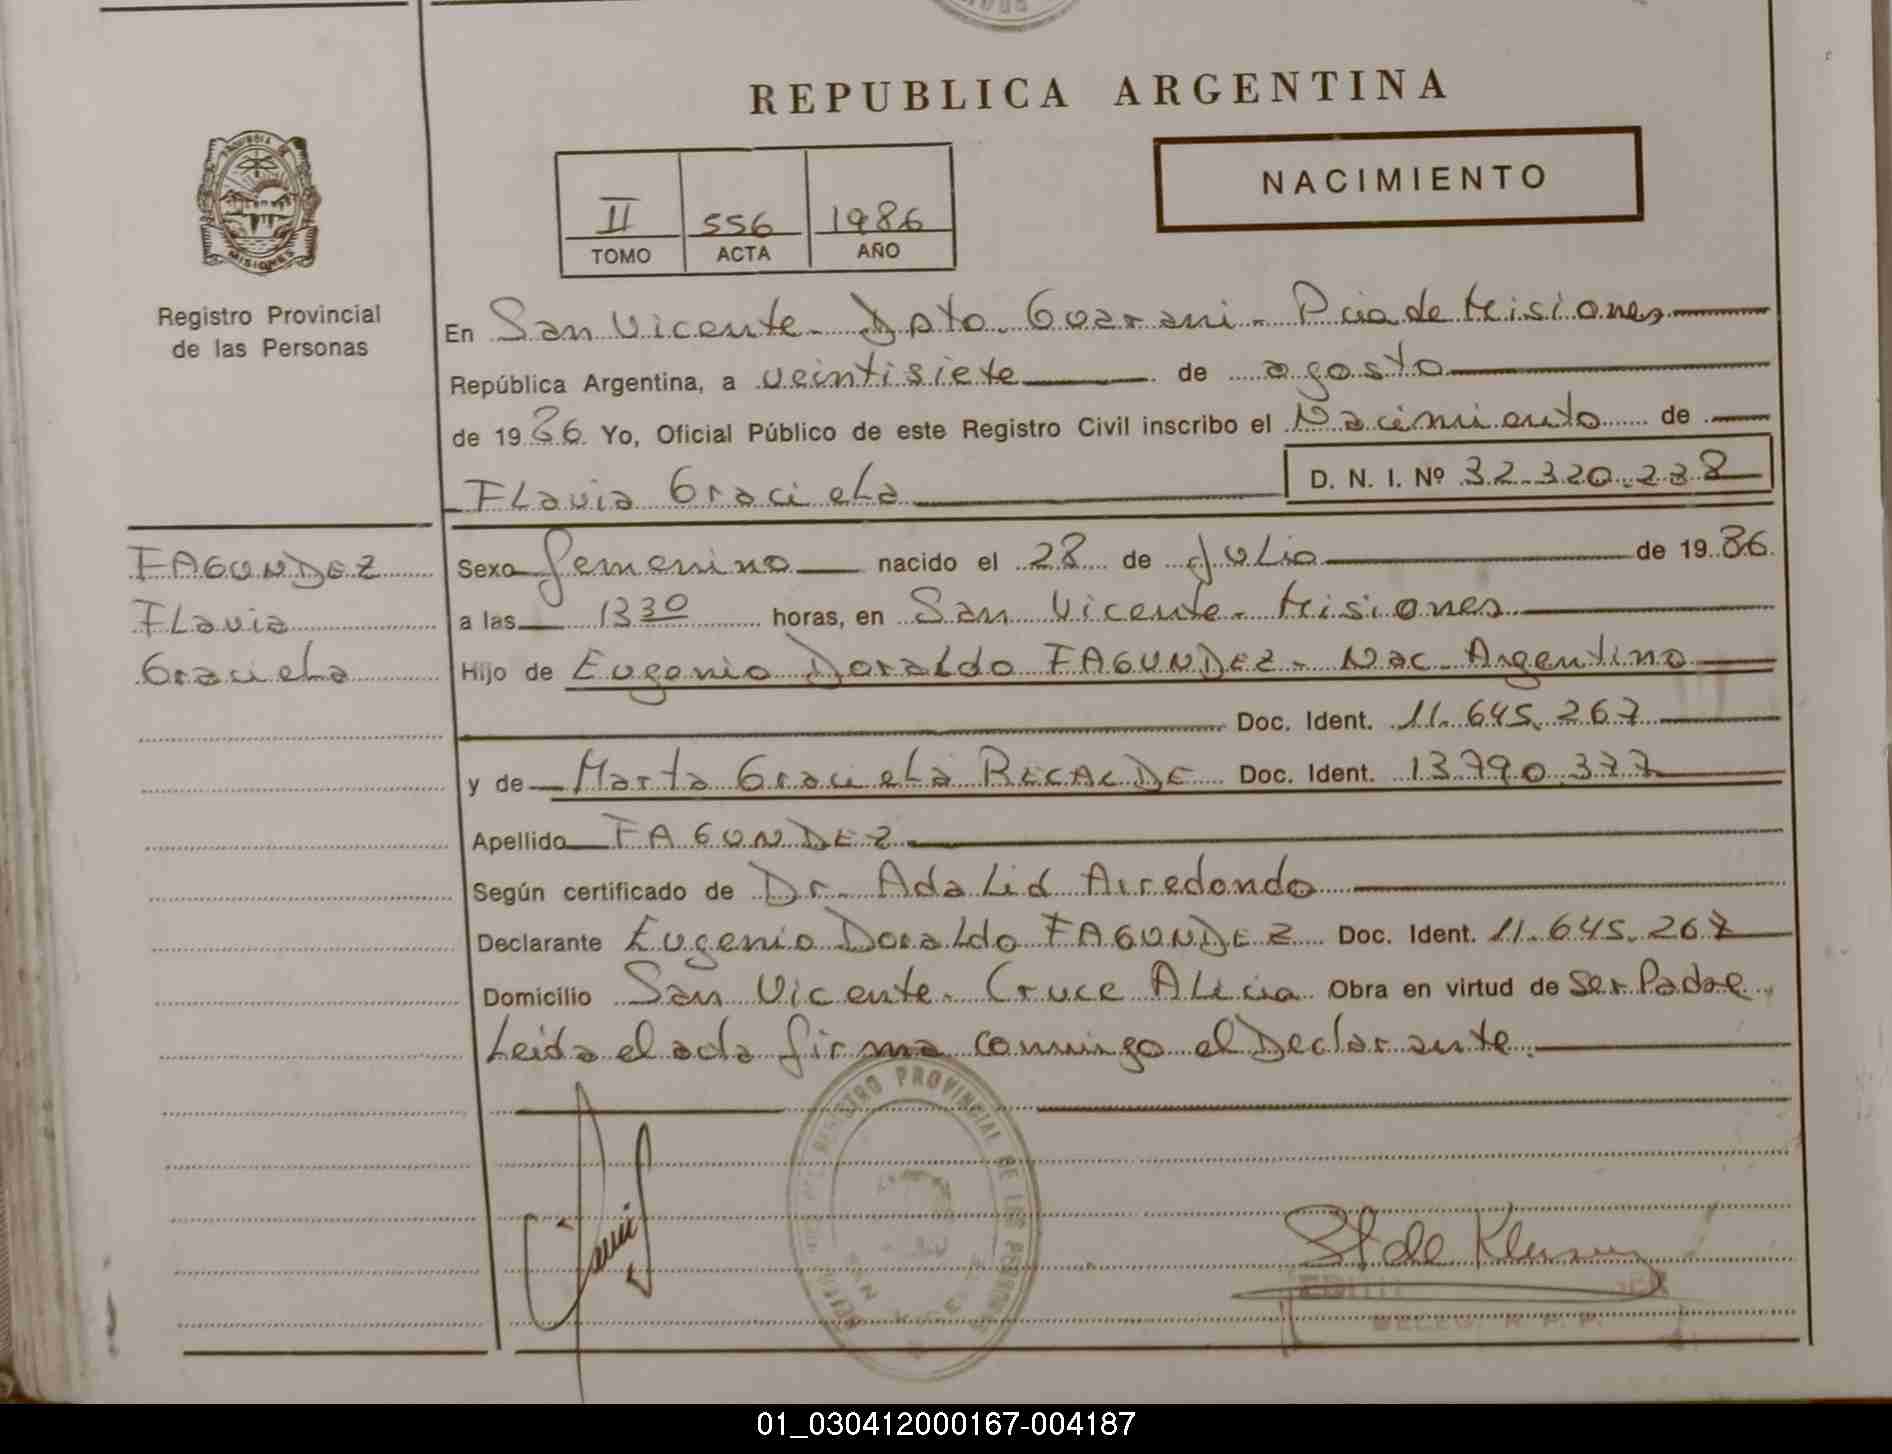 REPUBLICA ARGENTINA
NACIMIENTO
II 556 1986
TOMO ACTA AÑO
PROVINCIA DE
MISIONES
Registro Provincial
de las Personas
En San Vicente - Dpto. Guarani - Pcia de Misiones
República Argentina, a veintisiete de agosto
de 1986 Yo, Oficial Público de este Registro Civil inscribo el Nacimiento de
Flavia Graciela D. N. I. Nº 32.320.238
FAGUNDEZ
Flavia
Graciela
Sexo Femenino nacido el 28 de Julio de 1986
a las 1330 horas, en San Vicente - Misiones
Hijo de Eugenio Doraldo FAGUNDEZ - Nac. Argentino
Doc. Ident. 11.645.267
y de Marta Graciela RECALDE Doc. Ident. 13.790.377
Apellido FAGUNDEZ
Según certificado de Dr. Adalid Arredondo
Declarante Eugenio Doraldo FAGUNDEZ Doc. Ident. 11.645.267
Domicilio San Vicente - Cruce Alicia Obra en virtud de ser Padre
Leida el acta firma conmigo el Declarante.
REGISTRO PROVINCIAL DE LAS PERSONAS
SAN VICENTE
EDITH
R. P. P.
01_030412000167-004187